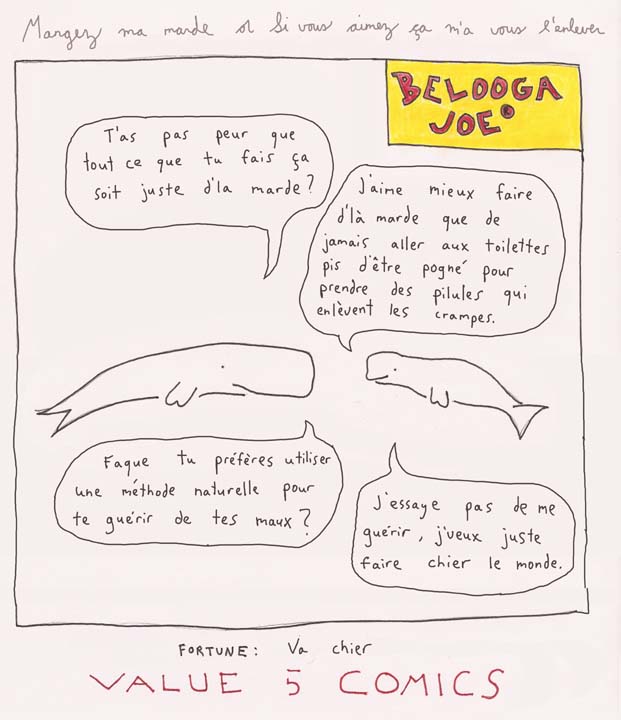 Mangez ma marde et si vous aimez ça m'a vous l'enlever
BELOOGA
JOE®
T'as pas peur que
tout ce que tu fais ça
soit juste d'la marde?
J'aime mieux faire
d'là marde que de
jamais aller aux toilettes
pis d'être pogné pour
prendre des pilules qui
enlèvent les crampes.
Faque tu préfères utiliser
une méthode naturelle pour
te guérir de tes maux?
J'essaye pas de me
guérir, j'veux juste
faire chier le monde.
FORTUNE: Va chier
VALUE 5 COMICS